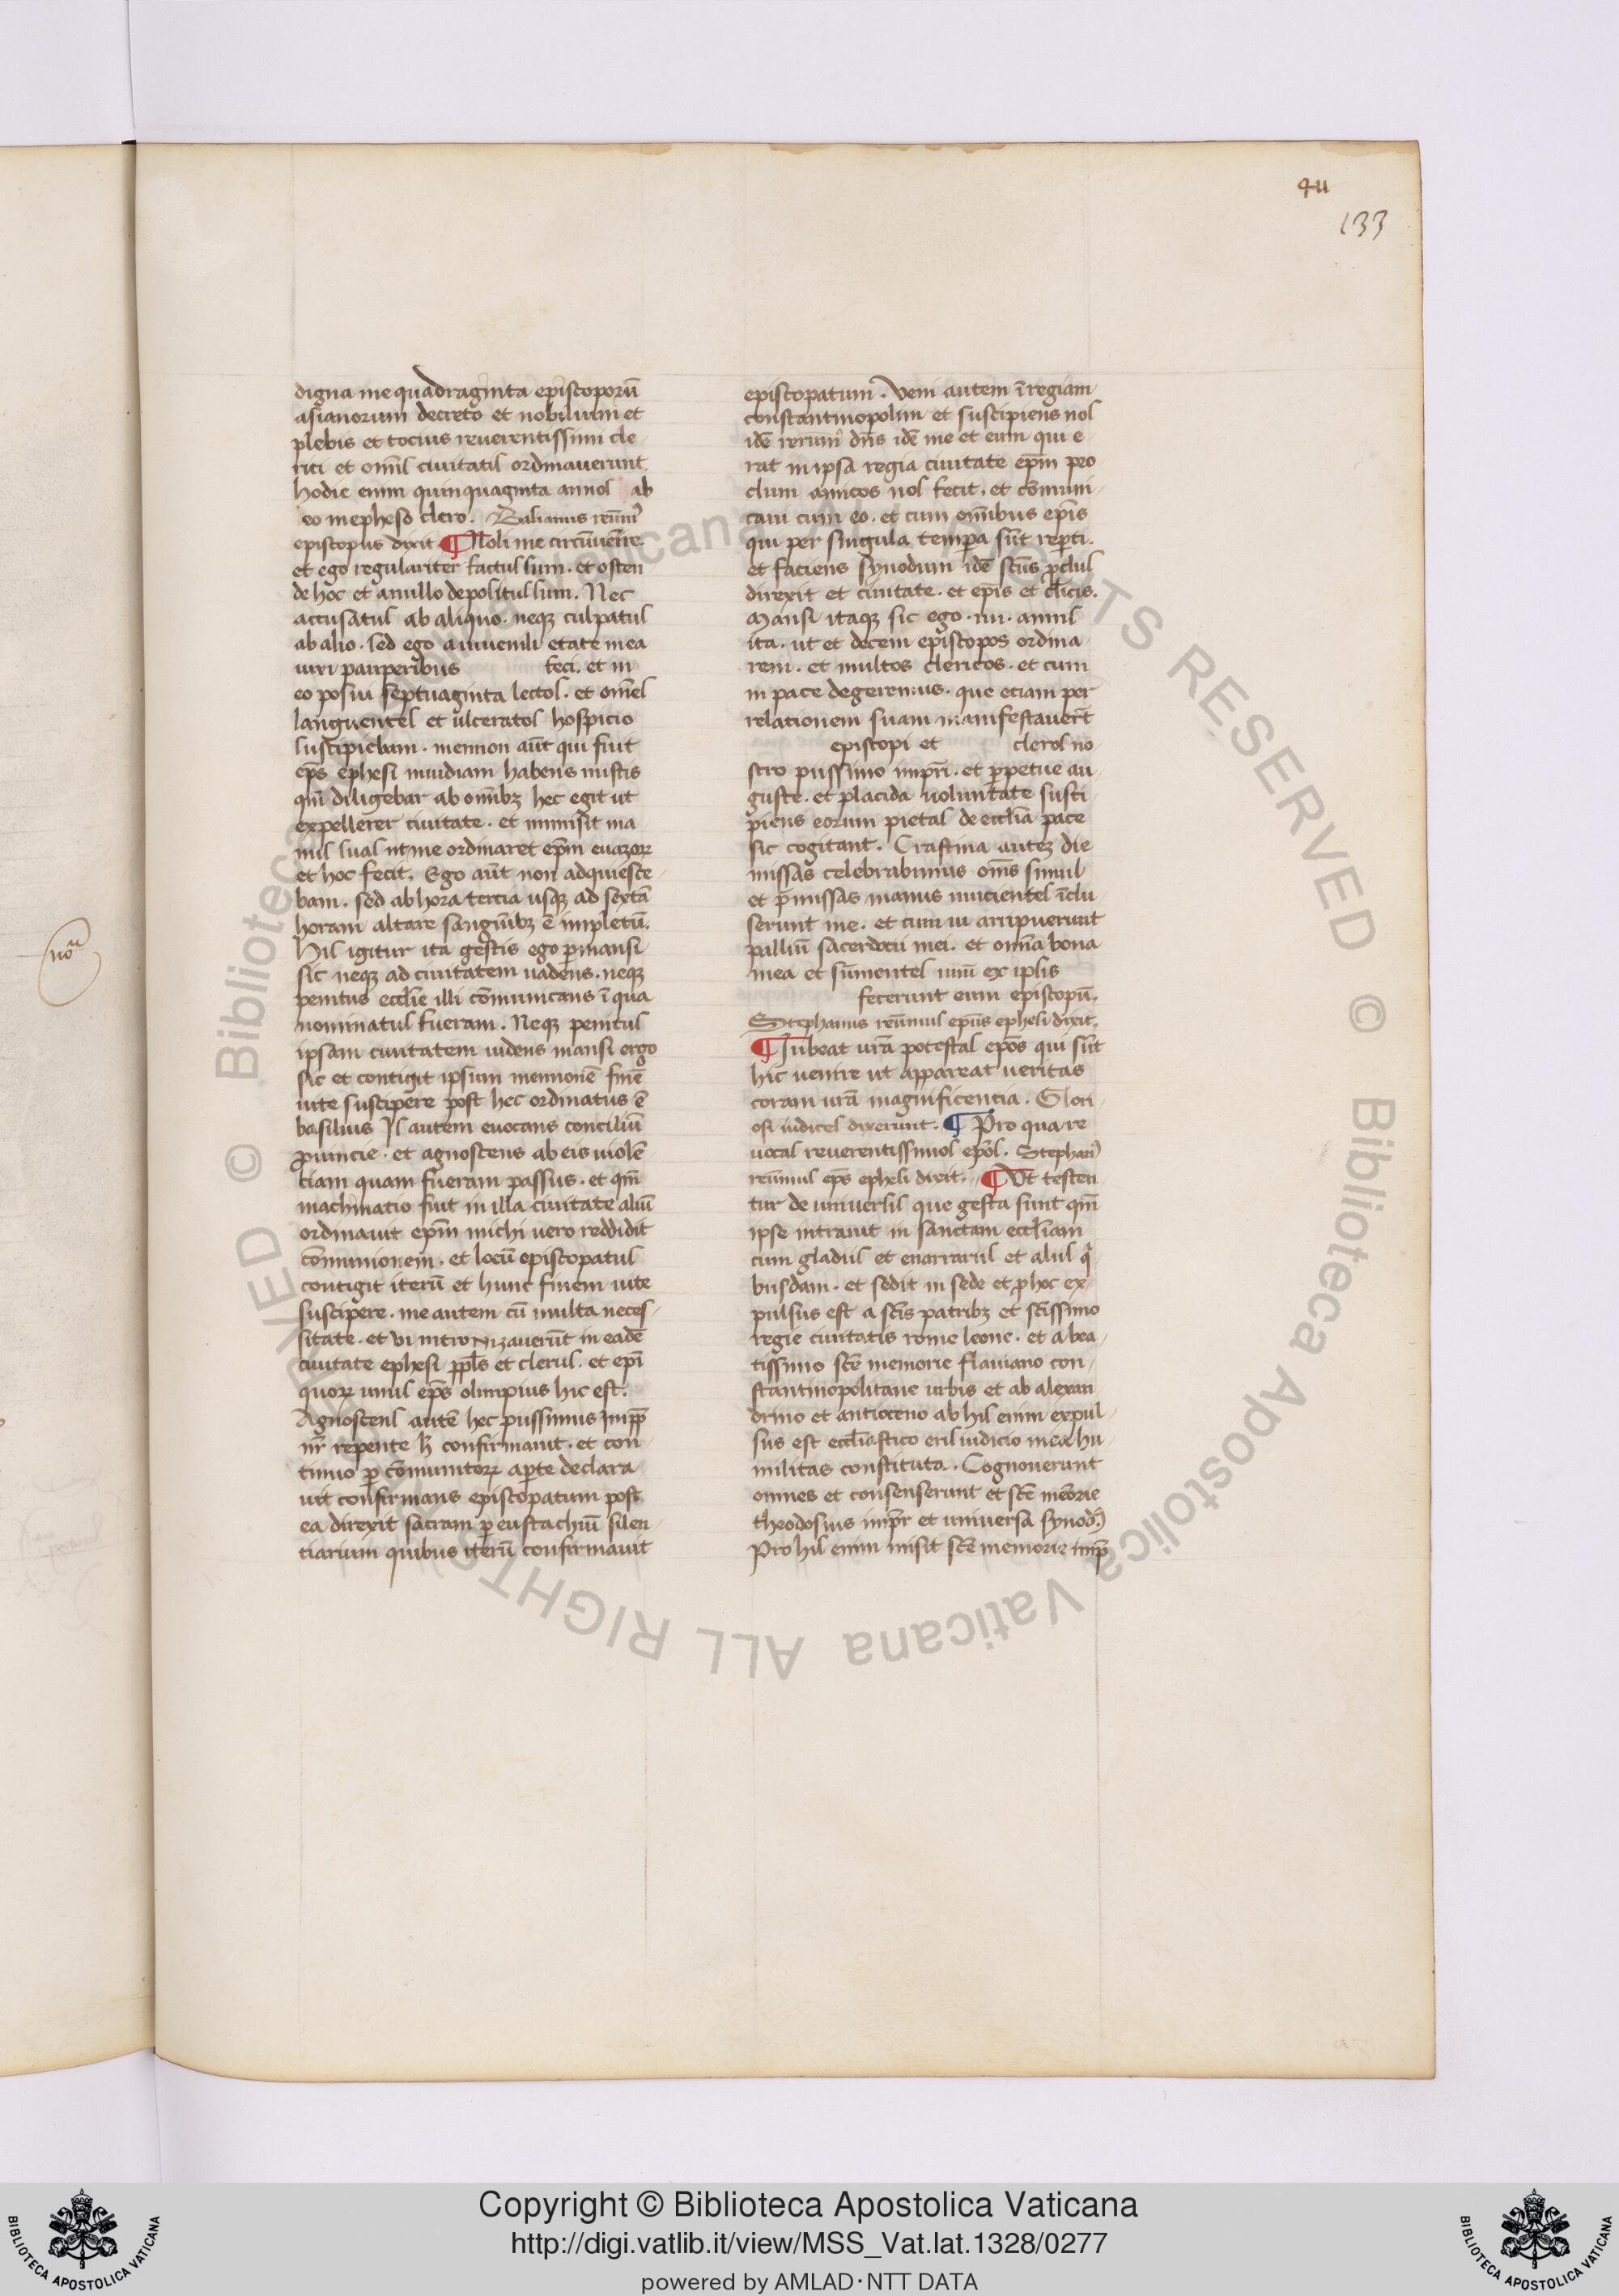 4u
133
digna me quadraginta episcoporū
asianorum decreto et nobilium et
plebis et tocius reuerentissimi cle-
rici et om̄s ciuitatis ordinauerunt
hodie enim quinquaginta annos ab
eo in epheso clero. Basianus reūm9
episcopus dixit ¶ Noli me circūuenire.
et ego regulariter factus sum. et osten
de hoc et a nullo depositus sum. Nec
accusatus ab aliquo. neqz culpatus
ab alio. sed ego a iuuenili etate mea
uixi pauperibus feci. et in
eo posui septuaginta lectos. et om̄es
languentes et ulceratos hospicio
suscipiebam. mennon aūt qui fuit
ep̄s ephesi inuidiam habens mistis
qm̄ diligebar ab om̄ibz hec egit ut
expellerer ciuitate. et inmisit ma
nus suas ut me ordinaret ep̄m euazoꝝ
et hoc fecit. Ego aūt non adquiesce-
bam. sed ab hora tercia usqz ad sextā
horam altare sanguībz ē impletū.
Hiis igitur ita gestis ego ꝑmansi
sic neqz ad ciuitatem uadens. neqz
penitus eccl̄ie illi cōmunicans ī qua
nominatus fueram. Neqz penitus
ipsam ciuitatem uidens mansi ergo
sic et contigit ipsum mennonē finē
uite suscipere post hec ordinatus ē
basilius Is autem euocans conciliū
ꝓuincie. et agnoscens ab eis uiolē
ciam quam fueram passus. et qm̄
machinatio fuit in illa ciuitate aliū
ordinauit ep̄m michi uero reddidit
cōmunionem. et locū episcopatus
contigit iterū et hunc finem uite
suscipere. me autem cū multa neces-
sitate. et ui intronizauerūt in eadē
ciuitate ephesi ppl̄s et clerus. et ep̄i
quoꝝ unus ep̄s olimpius hic est.
Agnoscens autē hec piissimus Impꝑ
nr̄ repente h̄ confirmauit. et con
tinuo ꝑ cōmunitoꝝ aꝑte declara
uit confirmans episcopatum post
ea direxit sacram ꝑ eustachiū silen
tiarium quibus iterū confirmauit
episcopatum. Veni autem ī regiam
constantinopolim et suscipiens nos
idē rerum dn̄s idē me et eum qui e-
rat in ipsa regia ciuitate ep̄m pro
clum amicos nos fecit. et cōmuni-
caui cum eo. et cum om̄ibus ep̄is
qui per singula temꝑa sūt reꝑti.
et faciens synodum idē scūs ꝓclus
direxit et ciuitate. et ep̄is et cl̄icis.
Mansi itaqz sic ego .iiii. annis
ita. ut et decem episcopos ordina
rem. et multos clericos. et cum
in pace degeremus. que etiam per
relationem suam manifestauer̄t
episcopi et cleros no-
stro piissimo impr̄i. et ꝑpetue au-
guste. et placida uoluntate susci-
piens eorum pietas de eccl̄ia pace
sic cogitant. Crastina autez die
missas celebrabimus om̄s simul
et ꝑ missas manus inicientes īclu-
serunt me. et cum ui arripuerunt
palliū sacerdocii mei. et om̄ia bona
mea et sūmentes unū ex ipsis
fecerunt eum episcopū.
Stephanus reūmus ep̄us ephesi dixit.
¶ Iubeat ur̄a potestas ep̄os qui sūt
hic uenire ut appareat ueritas
coram ur̄a magnificentia. Glori-
osi iudices dixerunt. ¶ Pro qua re
uocas reuerentissimos ep̄os. Stephan9
reūmus ep̄s ephesi dixit. ¶ Ut testen
tur de uniuersis que gesta sunt qm̄
ipse intrauit in sanctam eccl̄iam
cum gladiis et enarrarus et aliis qi
busdam. et sedit in sede et ꝓ hoc ex-
pulsus est a scīs patribz et scīssimo
regie ciuitatis rome leone. et a bea-
tissimo scē memorie flauiano con-
stantinopolitane urbis et ab alexan
drino et antioceno ab his enim expul-
sus est eccl̄iastico eris iudicio mea hu-
militas constituta. Cognouerunt
omnes et consenserunt et scē mēorie
theodosius impr̄ et uniuersa synod9
Pro his enim misit scē memorie impꝑ
noū
Copyright © Biblioteca Apostolica Vaticana
http://digi.vatlib.it/view/MSS_Vat.lat.1328/0277
powered by AMLAD·NTT DATA
BIBLIOTECA APOSTOLICA VATICANA
BIBLIOTECA APOSTOLICA VATICANA
© Biblioteca Apostolica Vaticana ALL RIGHTS RESERVED